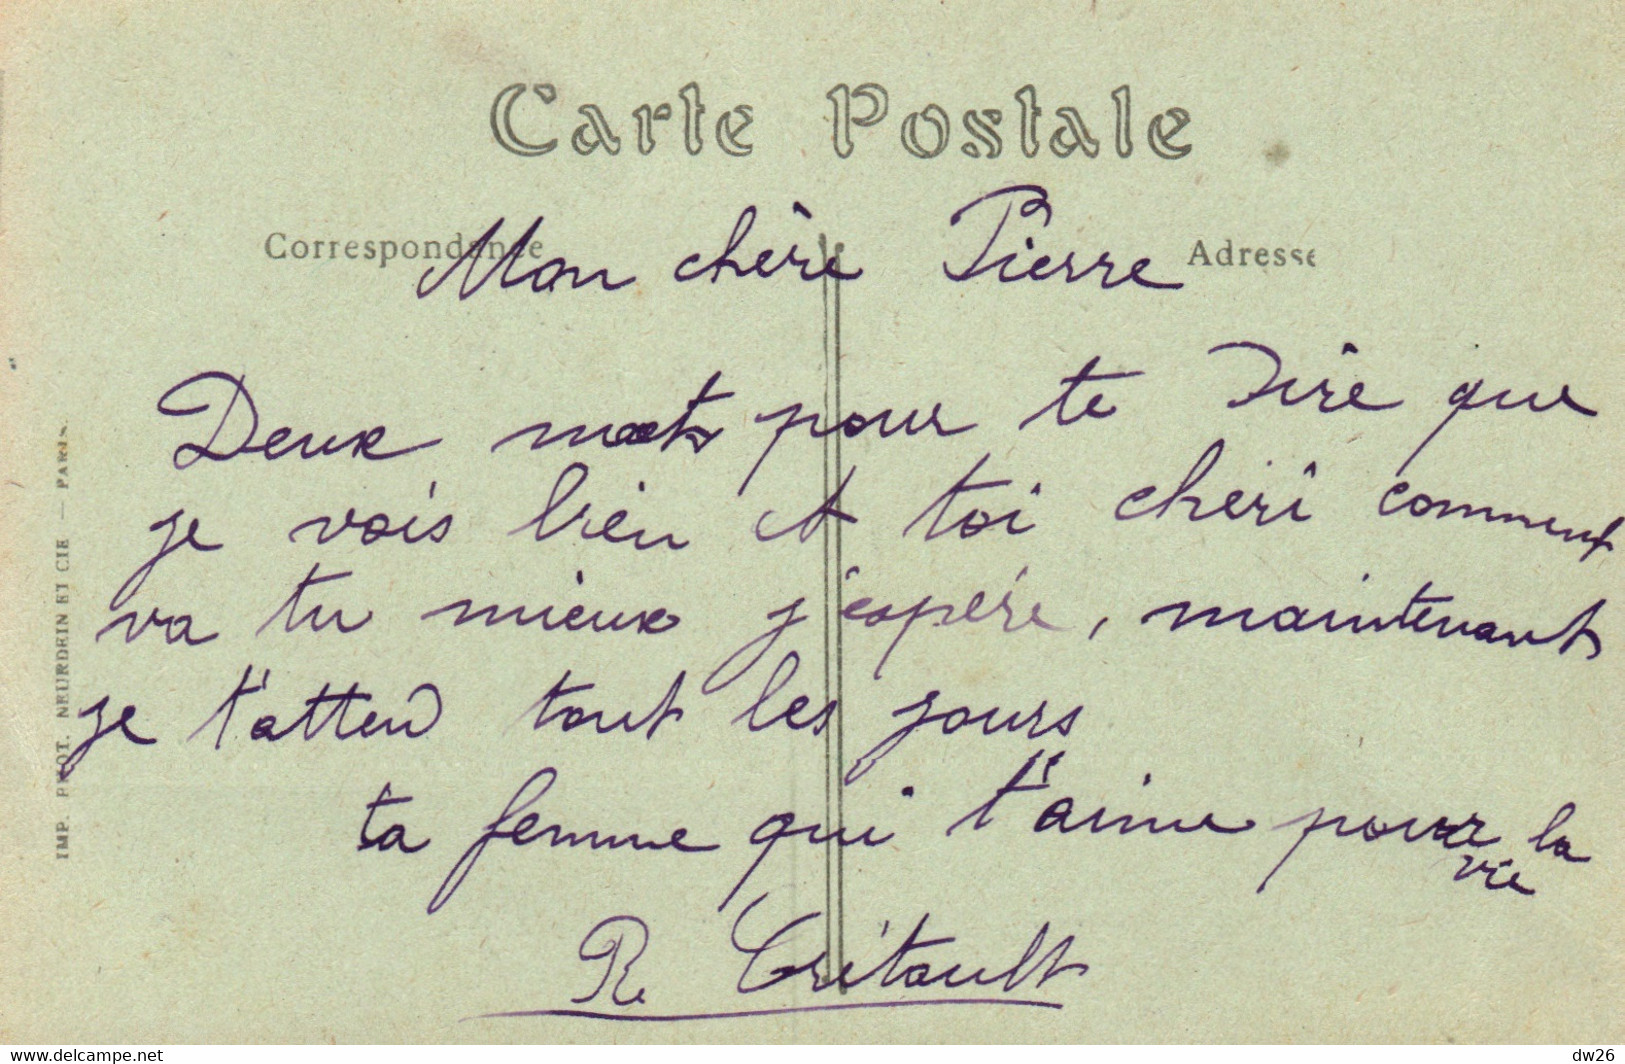 Carte Postale
Correspondance
Adresse
Mon chère Pierre
Deux mots pour te dire que
je vois bien et toi cheri comment
va tu mieux j'espére, maintenant
je t'attend tout les jours
ta femme qui t'aime pour la
vie
R.
IMP. PHOT. NEURDEIN ET CIE — PARIS
www.delcampe.net
dw26